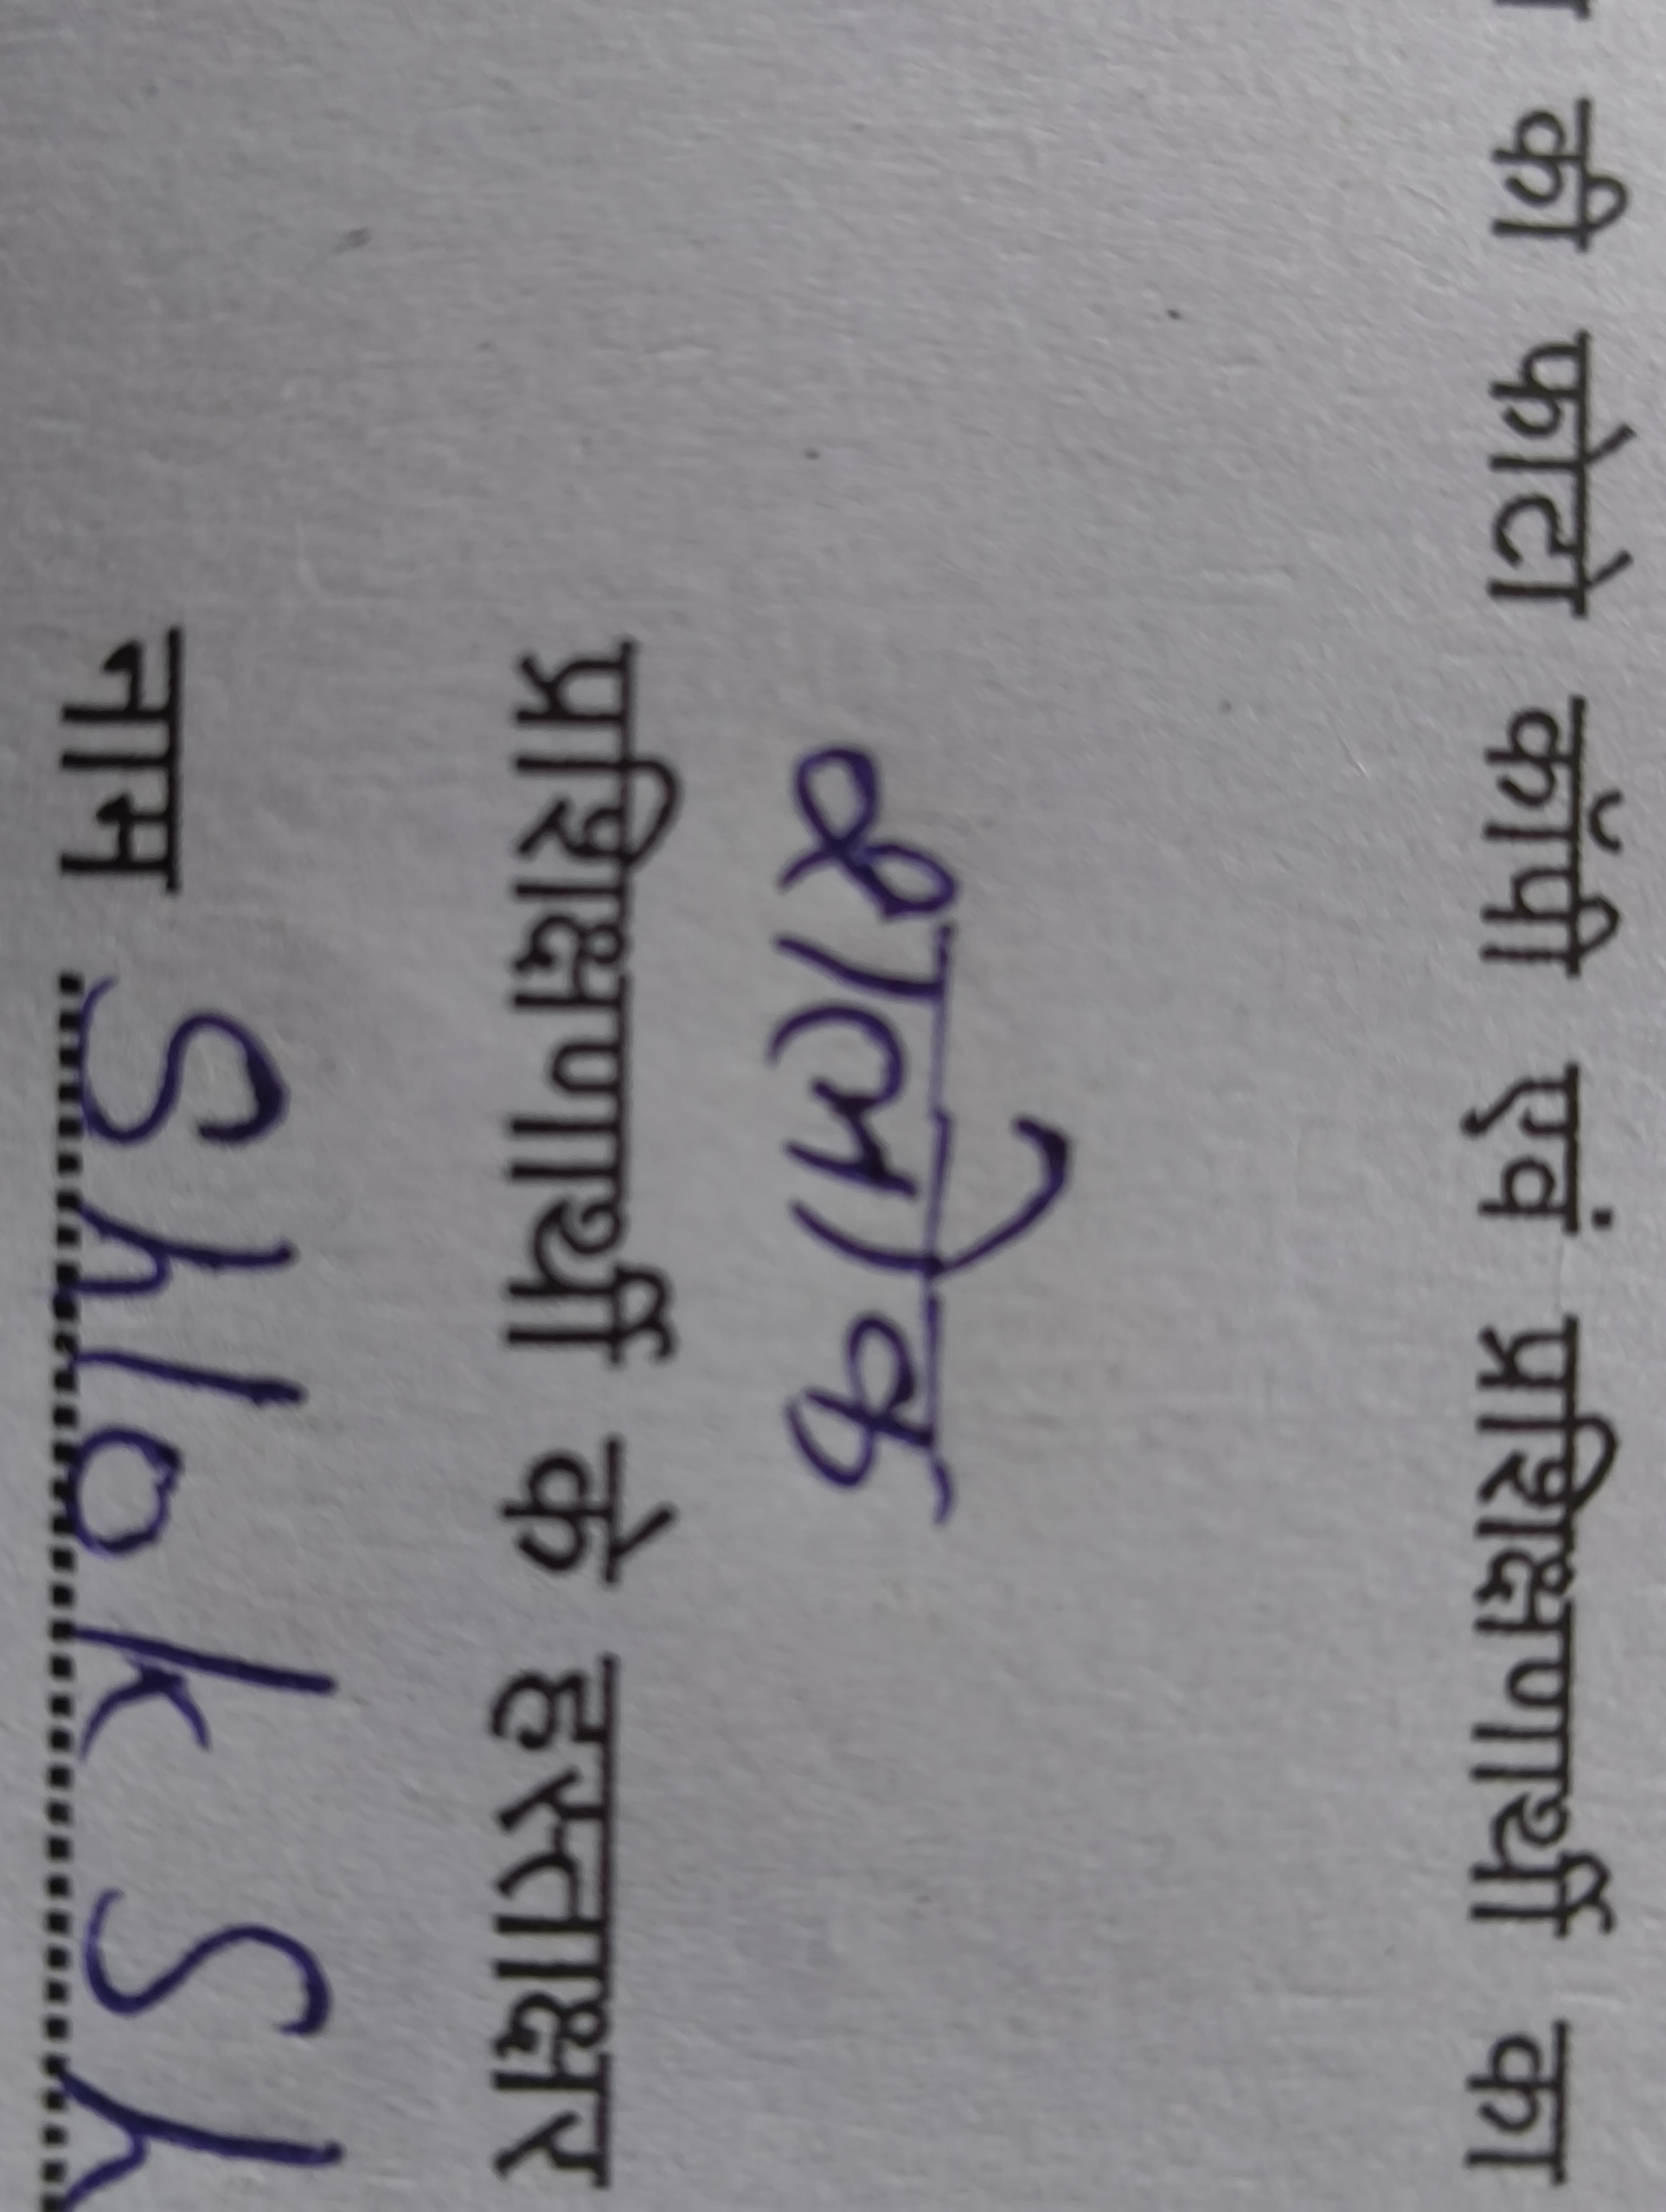 की फोटो कॉपी एवं प्रशिक्षणार्थी का
श्लोक
प्रशिक्षणार्थी के हस्ताक्षर
नाम Shlok Sh